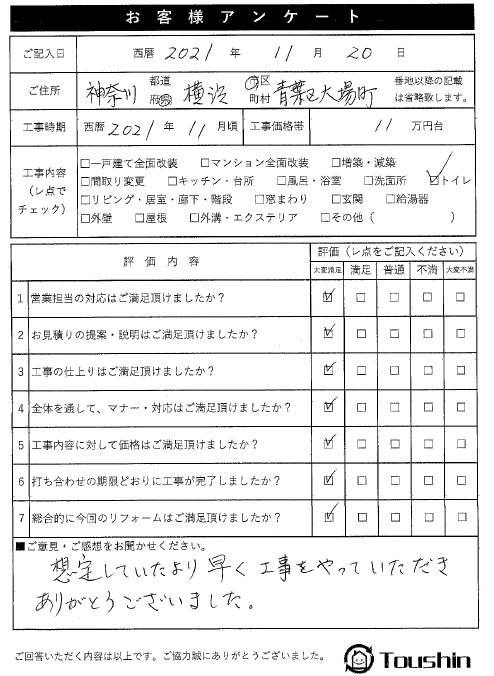 お客様アンケート
ご記入日 西暦 2021 年 11 月 20 日
ご住所 神奈川 都道府県 横浜 市区町村 青葉区大場町 番地以降の記載は省略致します。
工事時期 西暦 2021 年 11 月頃 工事価格帯 11 万円台
工事内容(レ点でチェック)
□一戸建て全面改装 □マンション全面改装 □増築・減築
□間取り変更 □キッチン・台所 □風呂・浴室 □洗面所 ☑トイレ
□リビング・居室・廊下・階段 □窓まわり □玄関 □給湯器
□外壁 □屋根 □外溝・エクステリア □その他( )
評価内容 評価(レ点をご記入ください)
大変満足 満足 普通 不満 大変不満
1 営業担当の対応はご満足頂けましたか? ☑ □ □ □ □
2 お見積りの提案・説明はご満足頂けましたか? ☑ □ □ □ □
3 工事の仕上りはご満足頂けましたか? ☑ □ □ □ □
4 全体を通して、マナー・対応はご満足頂けましたか? ☑ □ □ □ □
5 工事内容に対して価格はご満足頂けましたか? ☑ □ □ □ □
6 打ち合わせの期限どおりに工事が完了しましたか? ☑ □ □ □ □
7 総合的に今回のリフォームはご満足頂けましたか? ☑ □ □ □ □
■ご意見・ご感想をお聞かせください。
想定していたより早く工事をやっていただき
ありがとうございました。
ご回答いただく内容は以上です。ご協力誠にありがとうございました。 Toushin